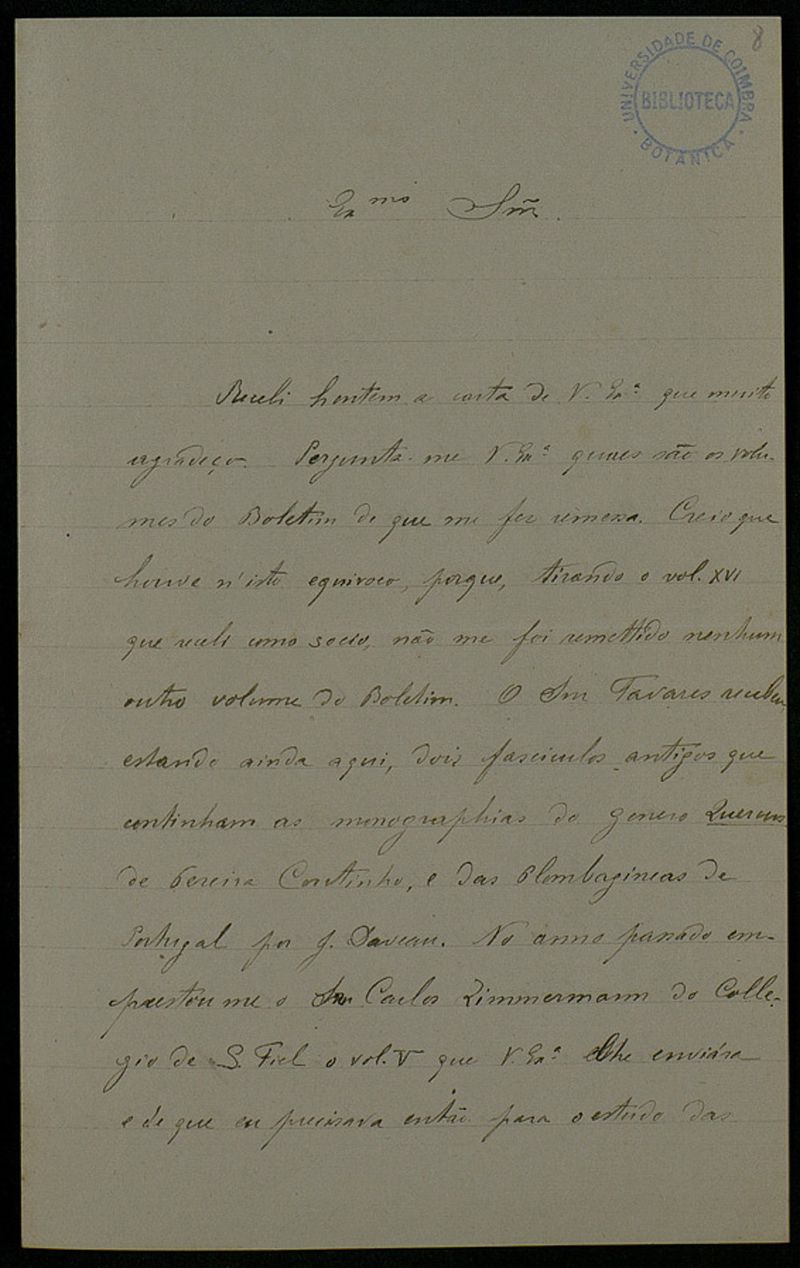 8
UNIVERSIDADE DE COIMBRA
BIBLIOTECA
BOTANICA
Ex.mo Snr.
Recebi hontem a carta de V. Ex.ª que muito
agradeço. Pergunta-me V. Ex.ª quaes são os volu-
mes do Boletim de que me fez remessa. Creio que
houve n'isto equivoco, porque, tirando o vol. XVI
que recebi como socio, não me foi remettido nenhum
outro volume do Boletim. O Snr Tavares recebeu,
estando ainda aqui, dois fasciculos antigos que
continham as monographias do genero Quercus
de Pereira Coutinho, e das Plombagineas de
Portugal por J. Daveau. No anno passado em-
prestou me o Snr Carlos Zimmermann do Colle-
gio de S. Fiel o vol. V que V. Ex.ª lhe enviára
e de que eu precisava então para o estudo das